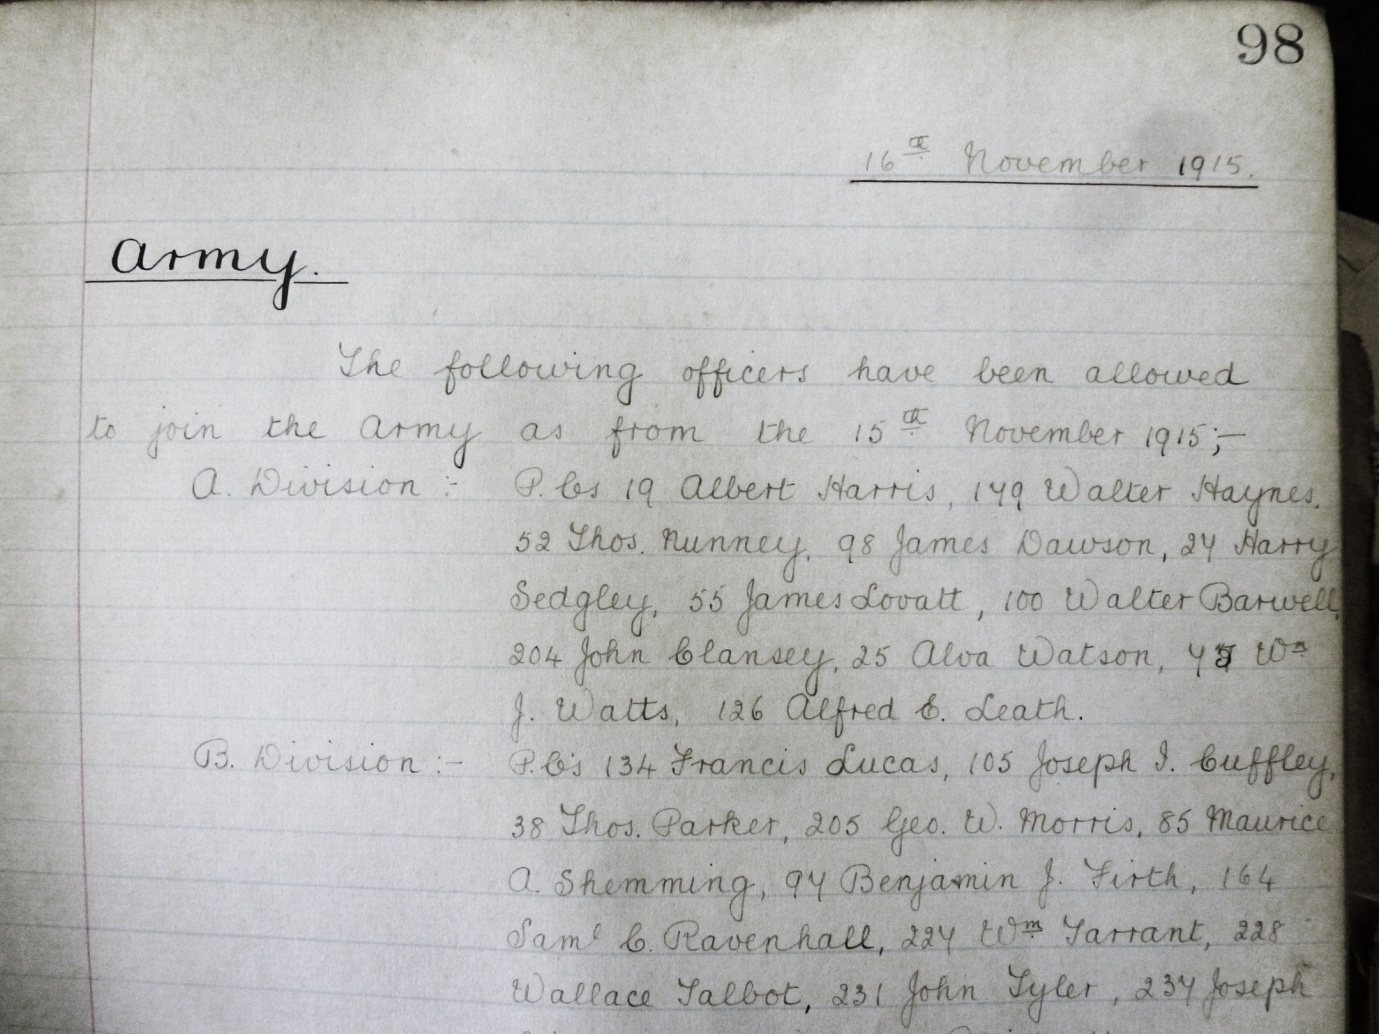 98
16th November 1915.
Army.
The following officers have been allowed
to join the Army as from the 15th November 1915;-
A. Division :- P.Cs 19 Albert Harris, 179 Walter Haynes,
52 Thos. Nunney, 98 James Dawson, 27 Harry
Sedgley, 55 James Lovatt, 100 Walter Barwell,
204 John Clansey, 25 Alva Watson, Wm
J. Watts, 126 Alfred E. Leath.
B. Division :- P.C's 134 Francis Lucas, 105 Joseph I. Cuffley,
38 Thos. Parker, 205 Geo. W. Morris, 85 Maurice
A. Shemming, 97 Benjamin J. Firth, 164
Saml C. Ravenhall, 227 Wm Tarrant, 228
Wallace Talbot, 231 John Tyler, 237 Joseph